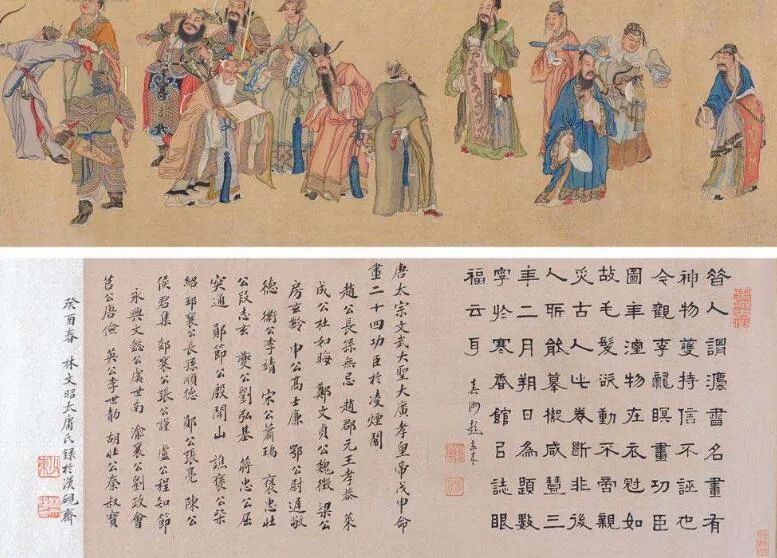 昔人謂灋書名畫有
神物護持信不誣也
今觀李龍瞑畫功臣
圖年湮物在衣冠如
故毛髮欲動不啻親
炙古人此卷斷非後
人所能摹擬咸豐三
年二月朔日為題數
字於寒香館㠯誌眼
福云耳
唐太宗文武大聖大廣孝皇帝戊申命
畫二十四功臣於凌煙閣
趙公長孫無忌 趙郡元王孝恭 萊
成公杜如晦 鄭文貞公魏徵 梁公
房玄齡 申公高士廉 鄂公尉遲敬
德 衞公李靖 宋公蕭瑀 褒忠壯
公段志玄 夔公劉弘基 蔣忠公屈
突通 鄖節公殷開山 譙襄公柴
紹 邳襄公長孫順德 公張亮 陳公
侯君集 郯襄公張公謹 盧公程知節
永興文懿公虞世南 渝襄公劉政會
莒公唐儉 英公李世勣 胡壯公秦叔寶
癸酉春 林文昭太庸氏錄於漢硯齋